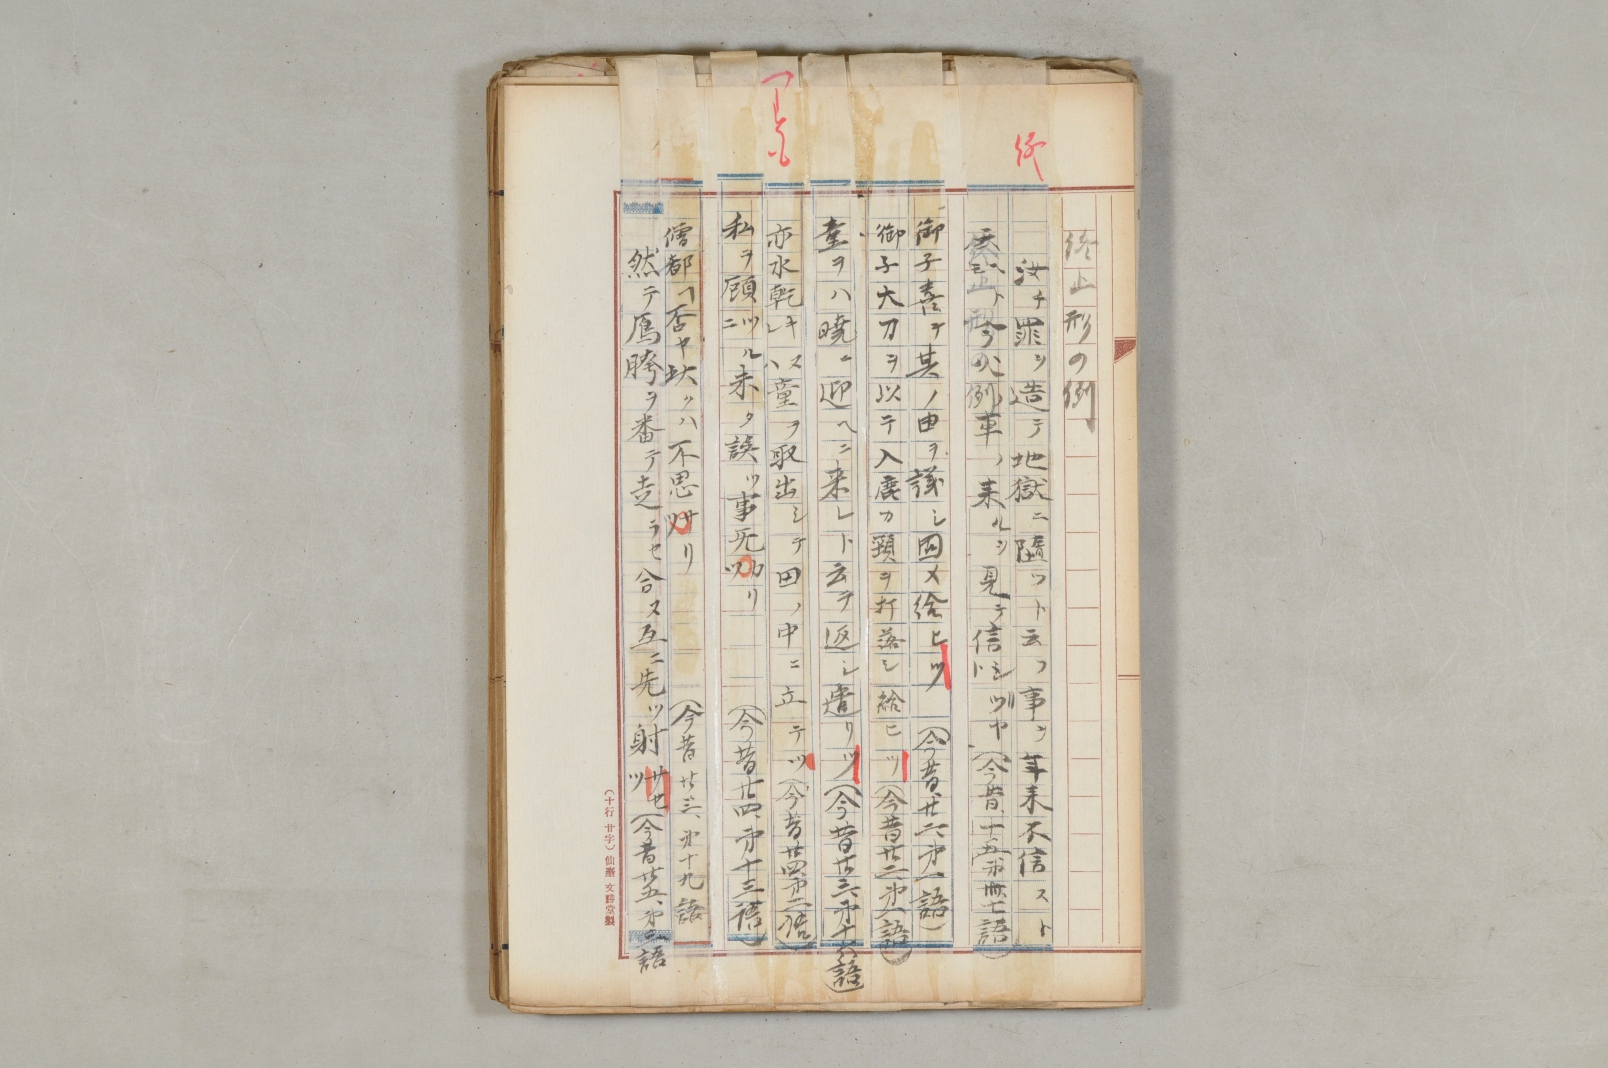 終止形の例
汝チ罪ヲ造テ地獄ニ墮ツト云フ事ヲ年来不信スト
云ヘトモ今火ノ車ノ来ルヲ見テ信シツヤ(今昔、十五、第卌七語)
御子喜テ其ノ由ヲ議シ固メ給ヒツ (今昔、廿二、第一語)
御子大刀ヲ以テ入鹿カ頸ヲ打落シ給ヒツ(今昔廿二、第一語)
童ヲハ暁ニ迎ヘニ来レト云テ返シ遣リツ(今昔廿三、第十六語)
亦水乾キレハ童ヲ取出シテ田ノ中ニ立テツ(今昔廿四、第二語)
私ヲ顧ニツル未タ誤ツ事无カリツ (今昔廿四、第十三語)
僧都「否ヤ坎クハ不思サリツ (今昔廿三、第十九語
然テ馬胯ヲ番テ走ラセ合ス互ニ先ツ射サセツ(今昔廿五、第三語
(十行 廿字) 仙臺 文勝堂製